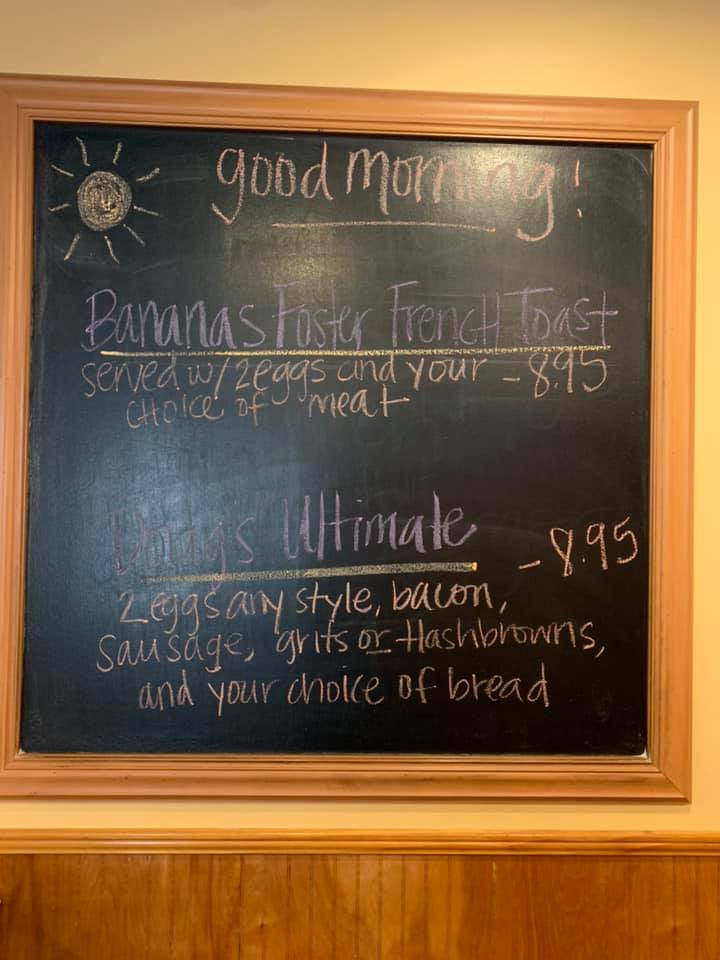 good morning!
Bananas Foster French Toast
served w/ 2 eggs and your - 8.95
choice of meat
Doug's Ultimate
- 8.95
2 eggs any style, bacon,
sausage, grits or Hashbrowns,
and your choice of bread